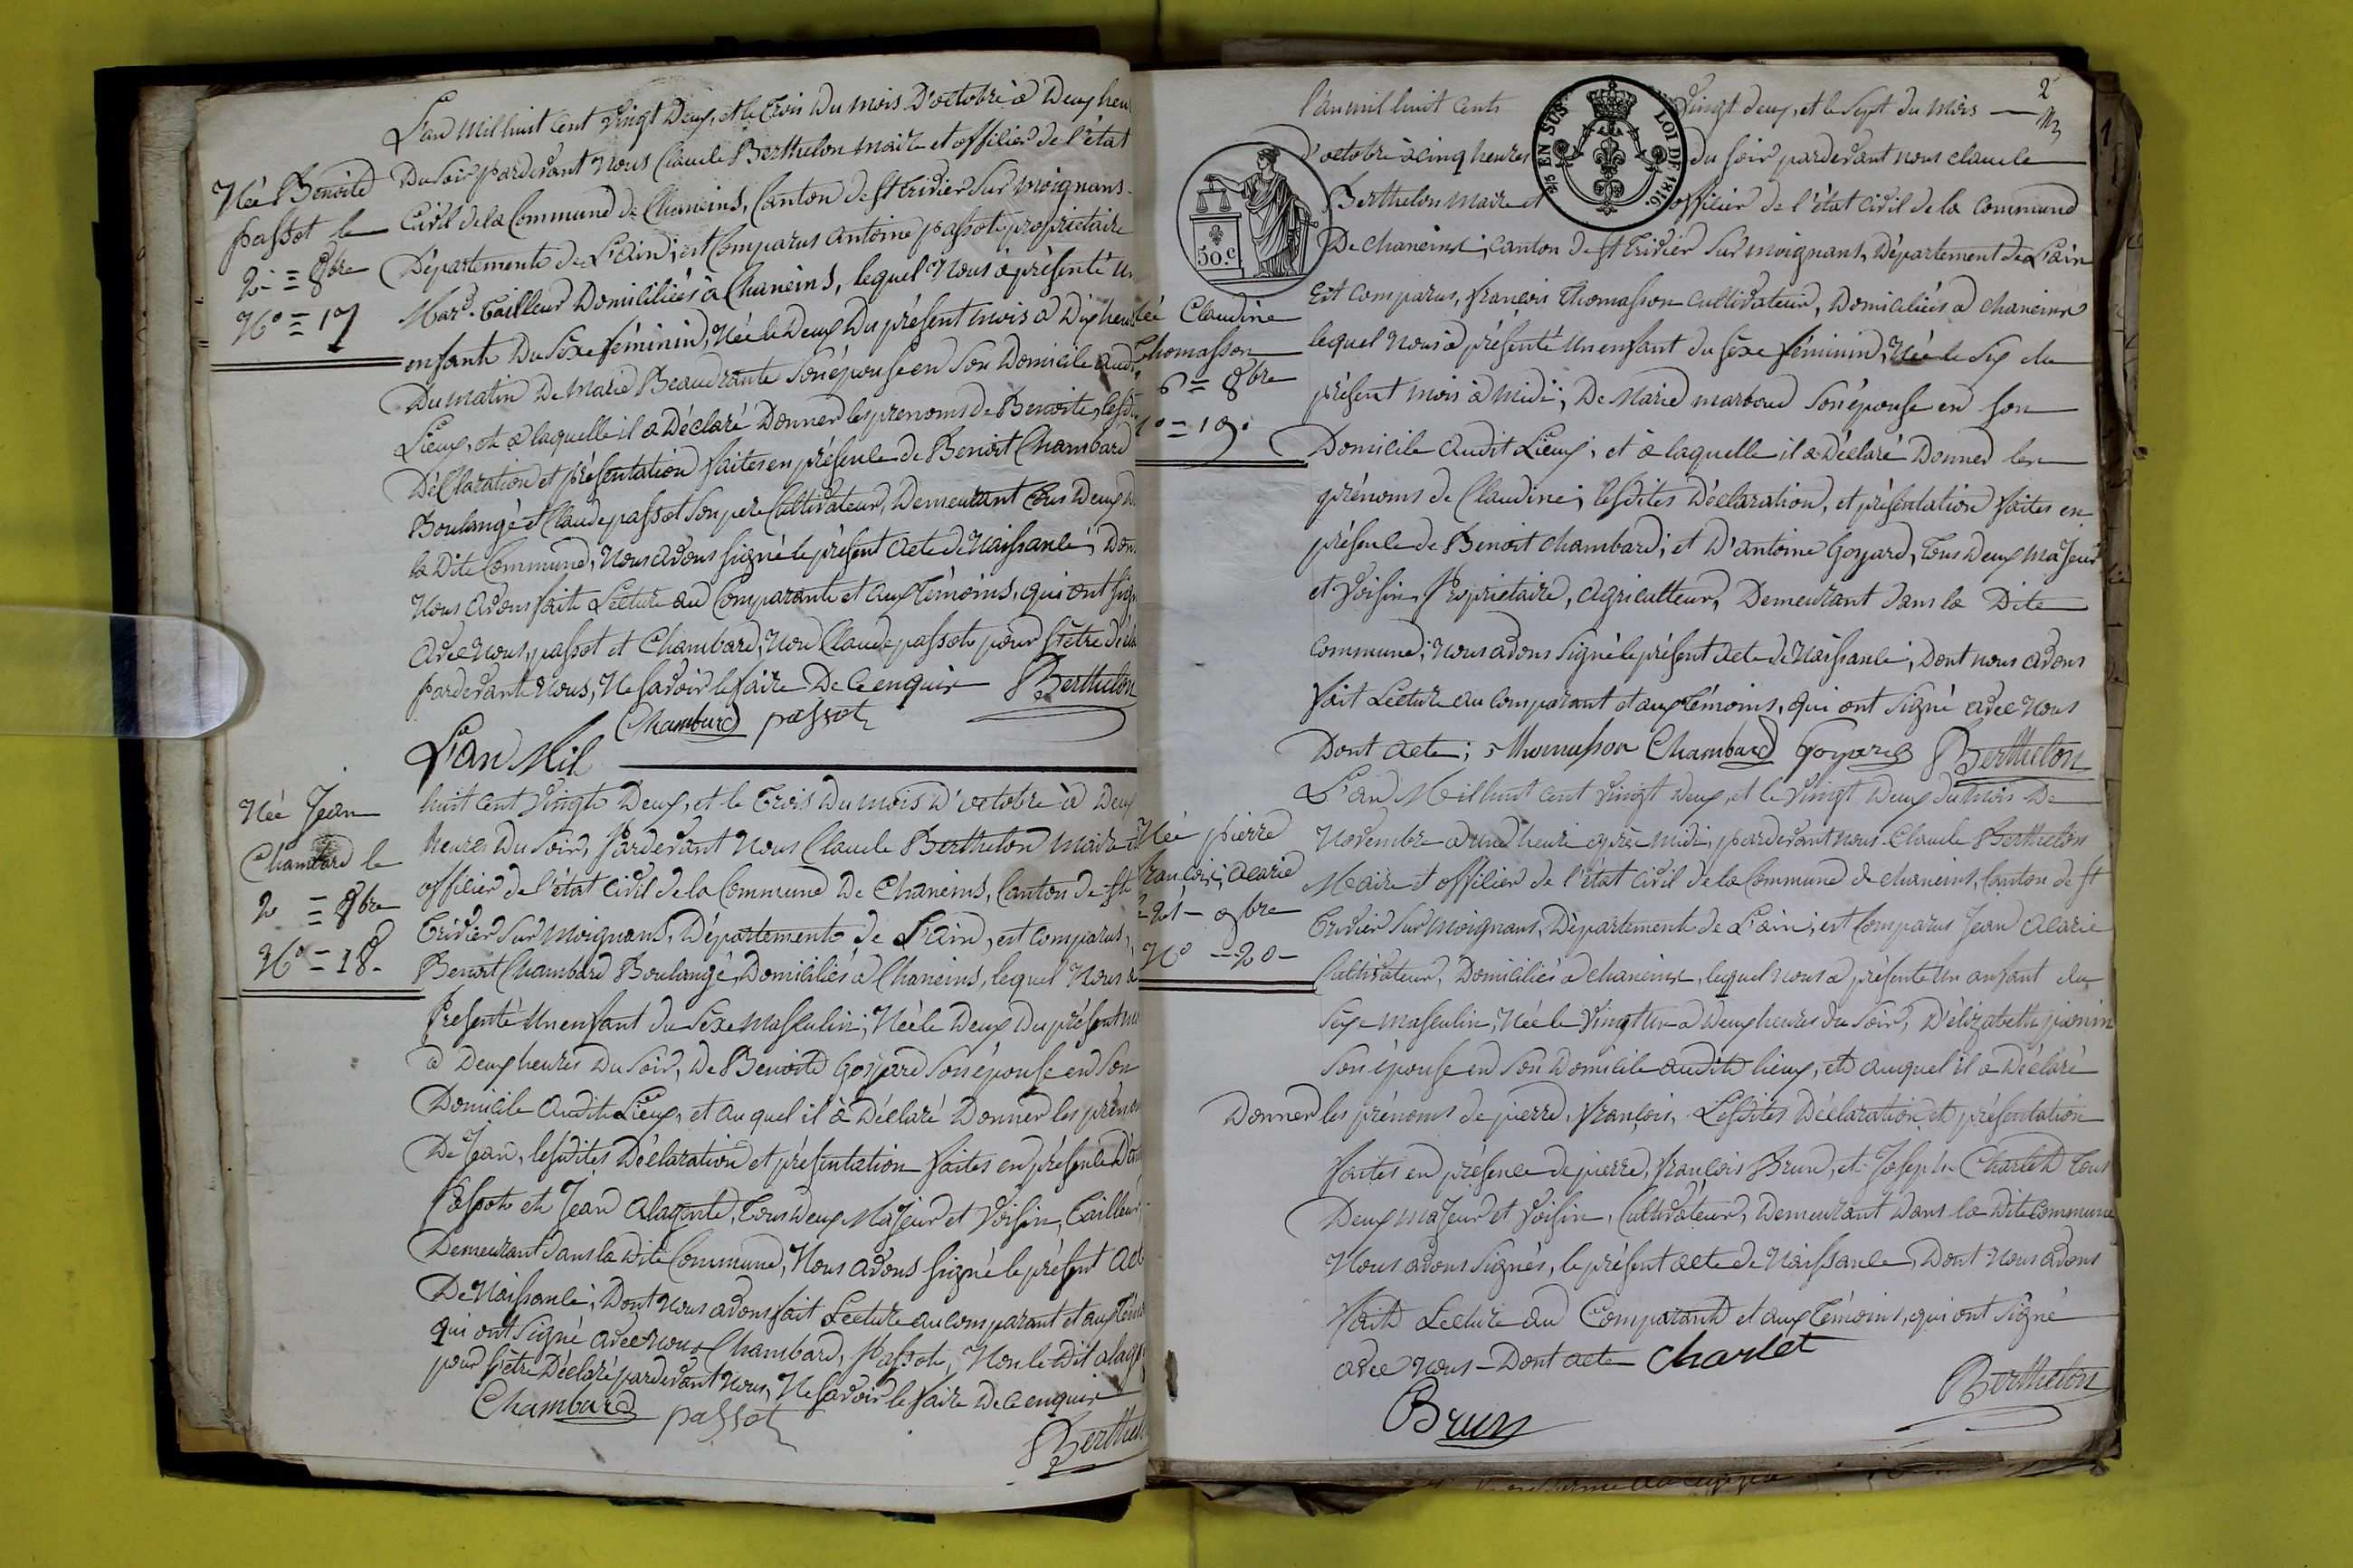 L'an Mil huit cent Vingt Deux, et le Trois du mois D'octobre à Deux heu
Du soir pardevant Nous Claude Berthelon maire et officier de l'état
Civil de la Commune de Chaneins, Canton de St trivier sur moignans
Département de L'ain; est Comparus antoine passot proprietaire
Mard. Tailleur Domiciliées à Chaneins, lequel Nous à présenté un
enfant Du Séxe féminin, Née le Deux Du présent mois à Dix heur
Du matin De marie Beaudrante Son épouse en Son Domicile aud
Lieux, et a laquelle il a Déclaré Donner les prenoms de Benoite, lesd
Déclaration et présentation faites en présence de Benoit Chambard
Boulangé et Claude passot Son pere Cultivateur, Demeurant Tous Deux
la Dite Commune, Nous avons signé le présent acte de Naissance, Don
Nous avons fait Lecture au Comparant et aux Témoins, qui ont sign
avec Nous, passot et Chambard, Non Claude passot pour s'être décla
pardevant Nous, Ne savoir le faire De ce enquir Berthelon
Chambard passot
Née Benoite
passot le
2 = 8bre
No = 17
L'an Mil
huit cent Vingt Deux, et le Trois Du mois D'octobre à Deux
heures Du soir, Pardevant Nous Claude Berthelon maire et
officier de l'état Civil de la Commune De Chaneins, Canton de St
Trivier sur moignans, Département de L'Ain, est comparus,
Benoit Chambard Boulangé, Domiciliés à Chaneins, lequel Nous à
Presenté un enfant du Séxe Masculin, Née le Deux Du présent mo
à Deux heures Du soir, De Benoite Goyard Son épouse en Son
Domicile audit Lieux, et au quel il à Déclaré Donner les prénom
De Jean, lesdites Déclaration et présentation faites en présence D'an
Passot et Jean alagonte, Tous Deux Majeur et Voisin, Tailleur,
Demeurant dans la dite Commune, Nous avons signé le présent act
De Naissance, Dont Nous avons fait Lecture au comparant et aux Témo
qui ont signé avec nous Chambard, Passot, Non le dit alago
pour s'être Déclaré pardevant Nous, Ne savoir le faire De ce enquir
Chambard passot
Berthel
Née Jean
Chambard le
2 = 8bre
No = 18.
2
l'an mil huit cents Vingt deux, et le Sept du mois
D'octobre à cinq heures du soir pardevant nous claude
Berthelon Maire et officier de l'état Civil de la Commune
De chaneins, canton de St trivier sur moignans, Département de L'ain
Est comparus, françois Thomasson cultivateur, Domiciliées à chaneins
lequel Nous à présenté un enfant du séxe féminin, Née le Six du
présent mois à midi; De Marie marboud Son épouse en son
Domicile audit Lieux, et à laquelle il a Déclaré Donner les
prénoms de Claudine; lesdites Déclaration, et présentation faites en
présence de Benoit chambard; et D'antoine Goyard, Tous Deux Majeur
et Voisin, Propriétaire, agriculteur, Demeurant dans la Dite
commune; Nous avons signé le présent acte de Naissance; Dont nous avons
fait Lecture au comparant et aux Témoins, qui ont signé avec Nous
Dont acte; Thomasson Chambard Goyard Berthelon
5 EN SUS
LOI DE 1816.
50.c
ée Claudine
Thomasson
6 = 8bre
o = 19.
L'an Mil huit cent Vingt Deux, et le Vingt Deux du mois De
Novembre a une heure après Midi, pardevant nous Claude Berthelon
Maire et officier de l'état Civil de la Commune de chaneins, Canton de St
Trivier sur Moignans, Département de L'ain; est Comparus Jean Alarie
Cultivateur, Domiciliés à chaneins, lequel nous a présenté un anfant du
Séxe Masculin, Née le Vingt Un a Deux heures du Soir, D'élizabeth pionin
Son épouse en Son Domicile audit lieux, et auquel il a Déclaré
Donner les prénoms de pierre, françois, Lesdites Déclaration, et présentation
faites en présence de pierre, françois Brun, et Joseph Charlet Tous
Deux majeur et Voisin, Cultivateur, Demeurant Dans la Dite Commune
Nous avons Signés, le présent acte de Naissance, Dont Nous avons
Fait Lecture au Comparant et aux Témoins, qui ont Signé
avec Nous - Dont acte Charlet
Brun
Berthelon
Née pierre
françois, alarie
21 - 9bre
No - 20 -